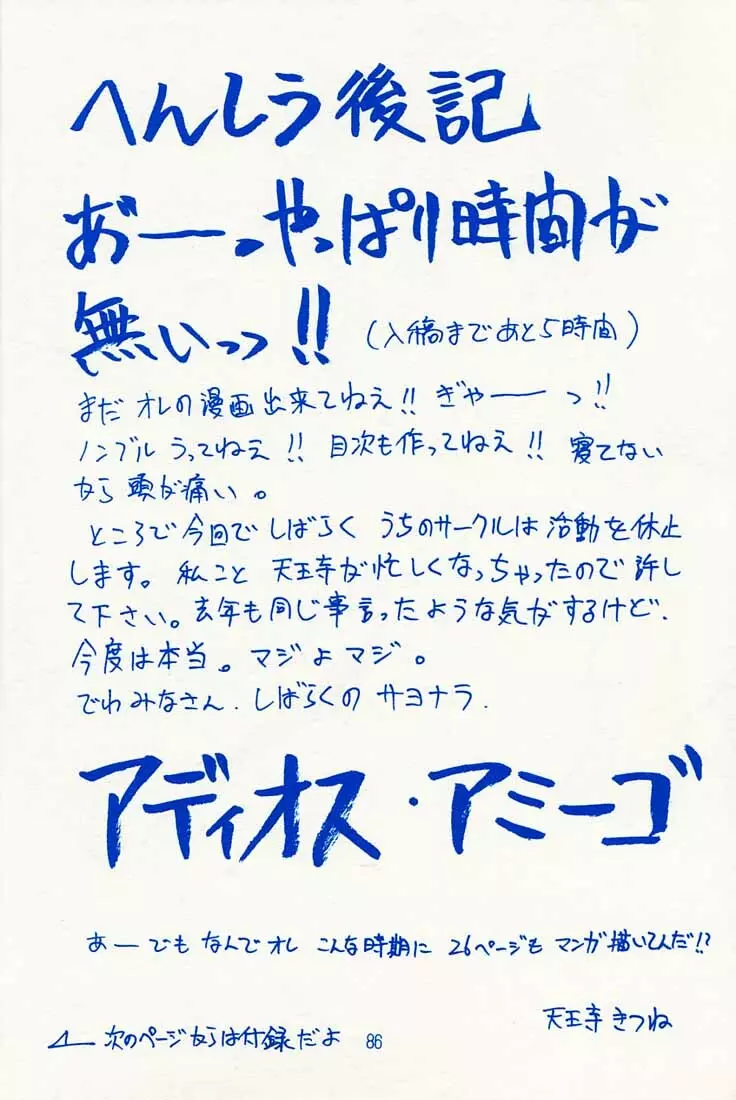 へんしう後記
あ゛ーっやっぱり時間が
無いっっ!!（入稿まであと5時間）
まだオレの漫画出来てねえ!! ぎゃーーっ!!
ノンブルうってねえ!! 目次も作ってねえ!! 寝てない
から頭が痛い。
ところで今回でしばらく うちのサークルは活動を休止
します。私こと 天王寺が忙しくなっちゃったので許し
て下さい。去年も同じ事言ったような気がするけど、
今度は本当。マジよマジ。
でわみなさん、しばらくのサヨナラ.
アディオス・アミーゴ
あーでもなんでオレ こんな時期に 26ページも マンガ描いてんだ!?
天王寺きつね
次のページからは付録だよ 86